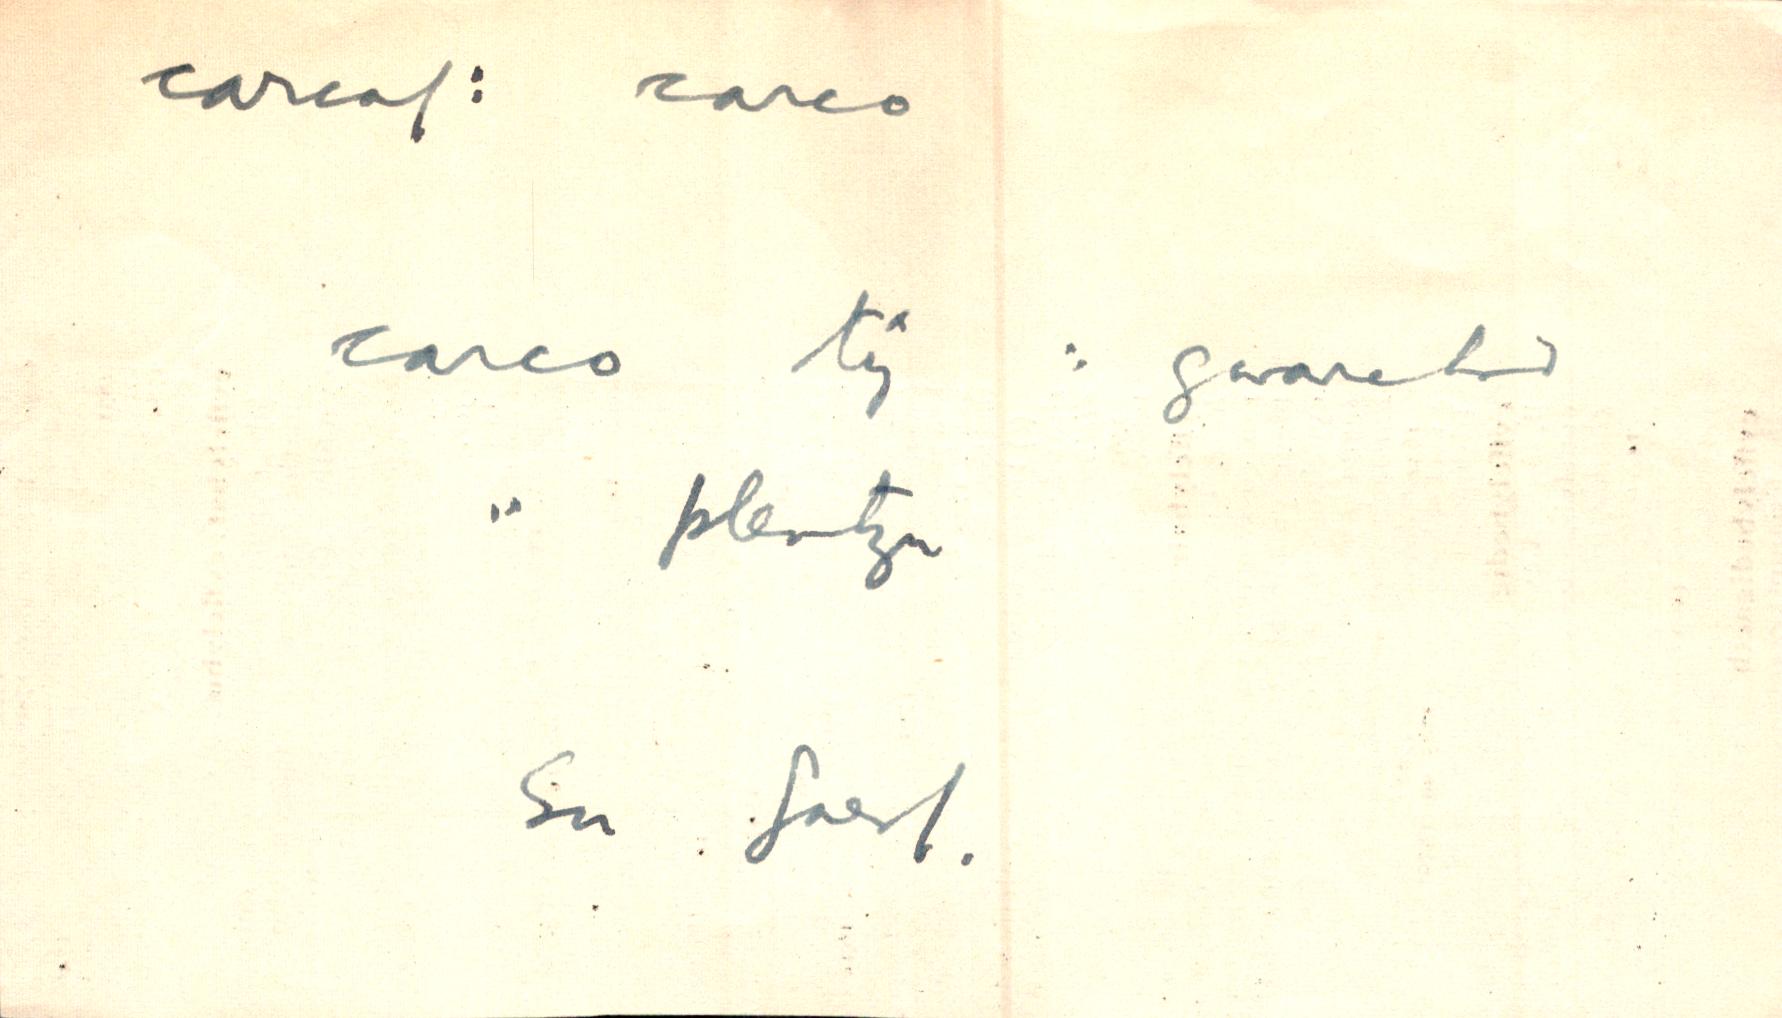 carcaf: carco
carco tŷ : gwarchod
" plentyn
Sir Gaerf.